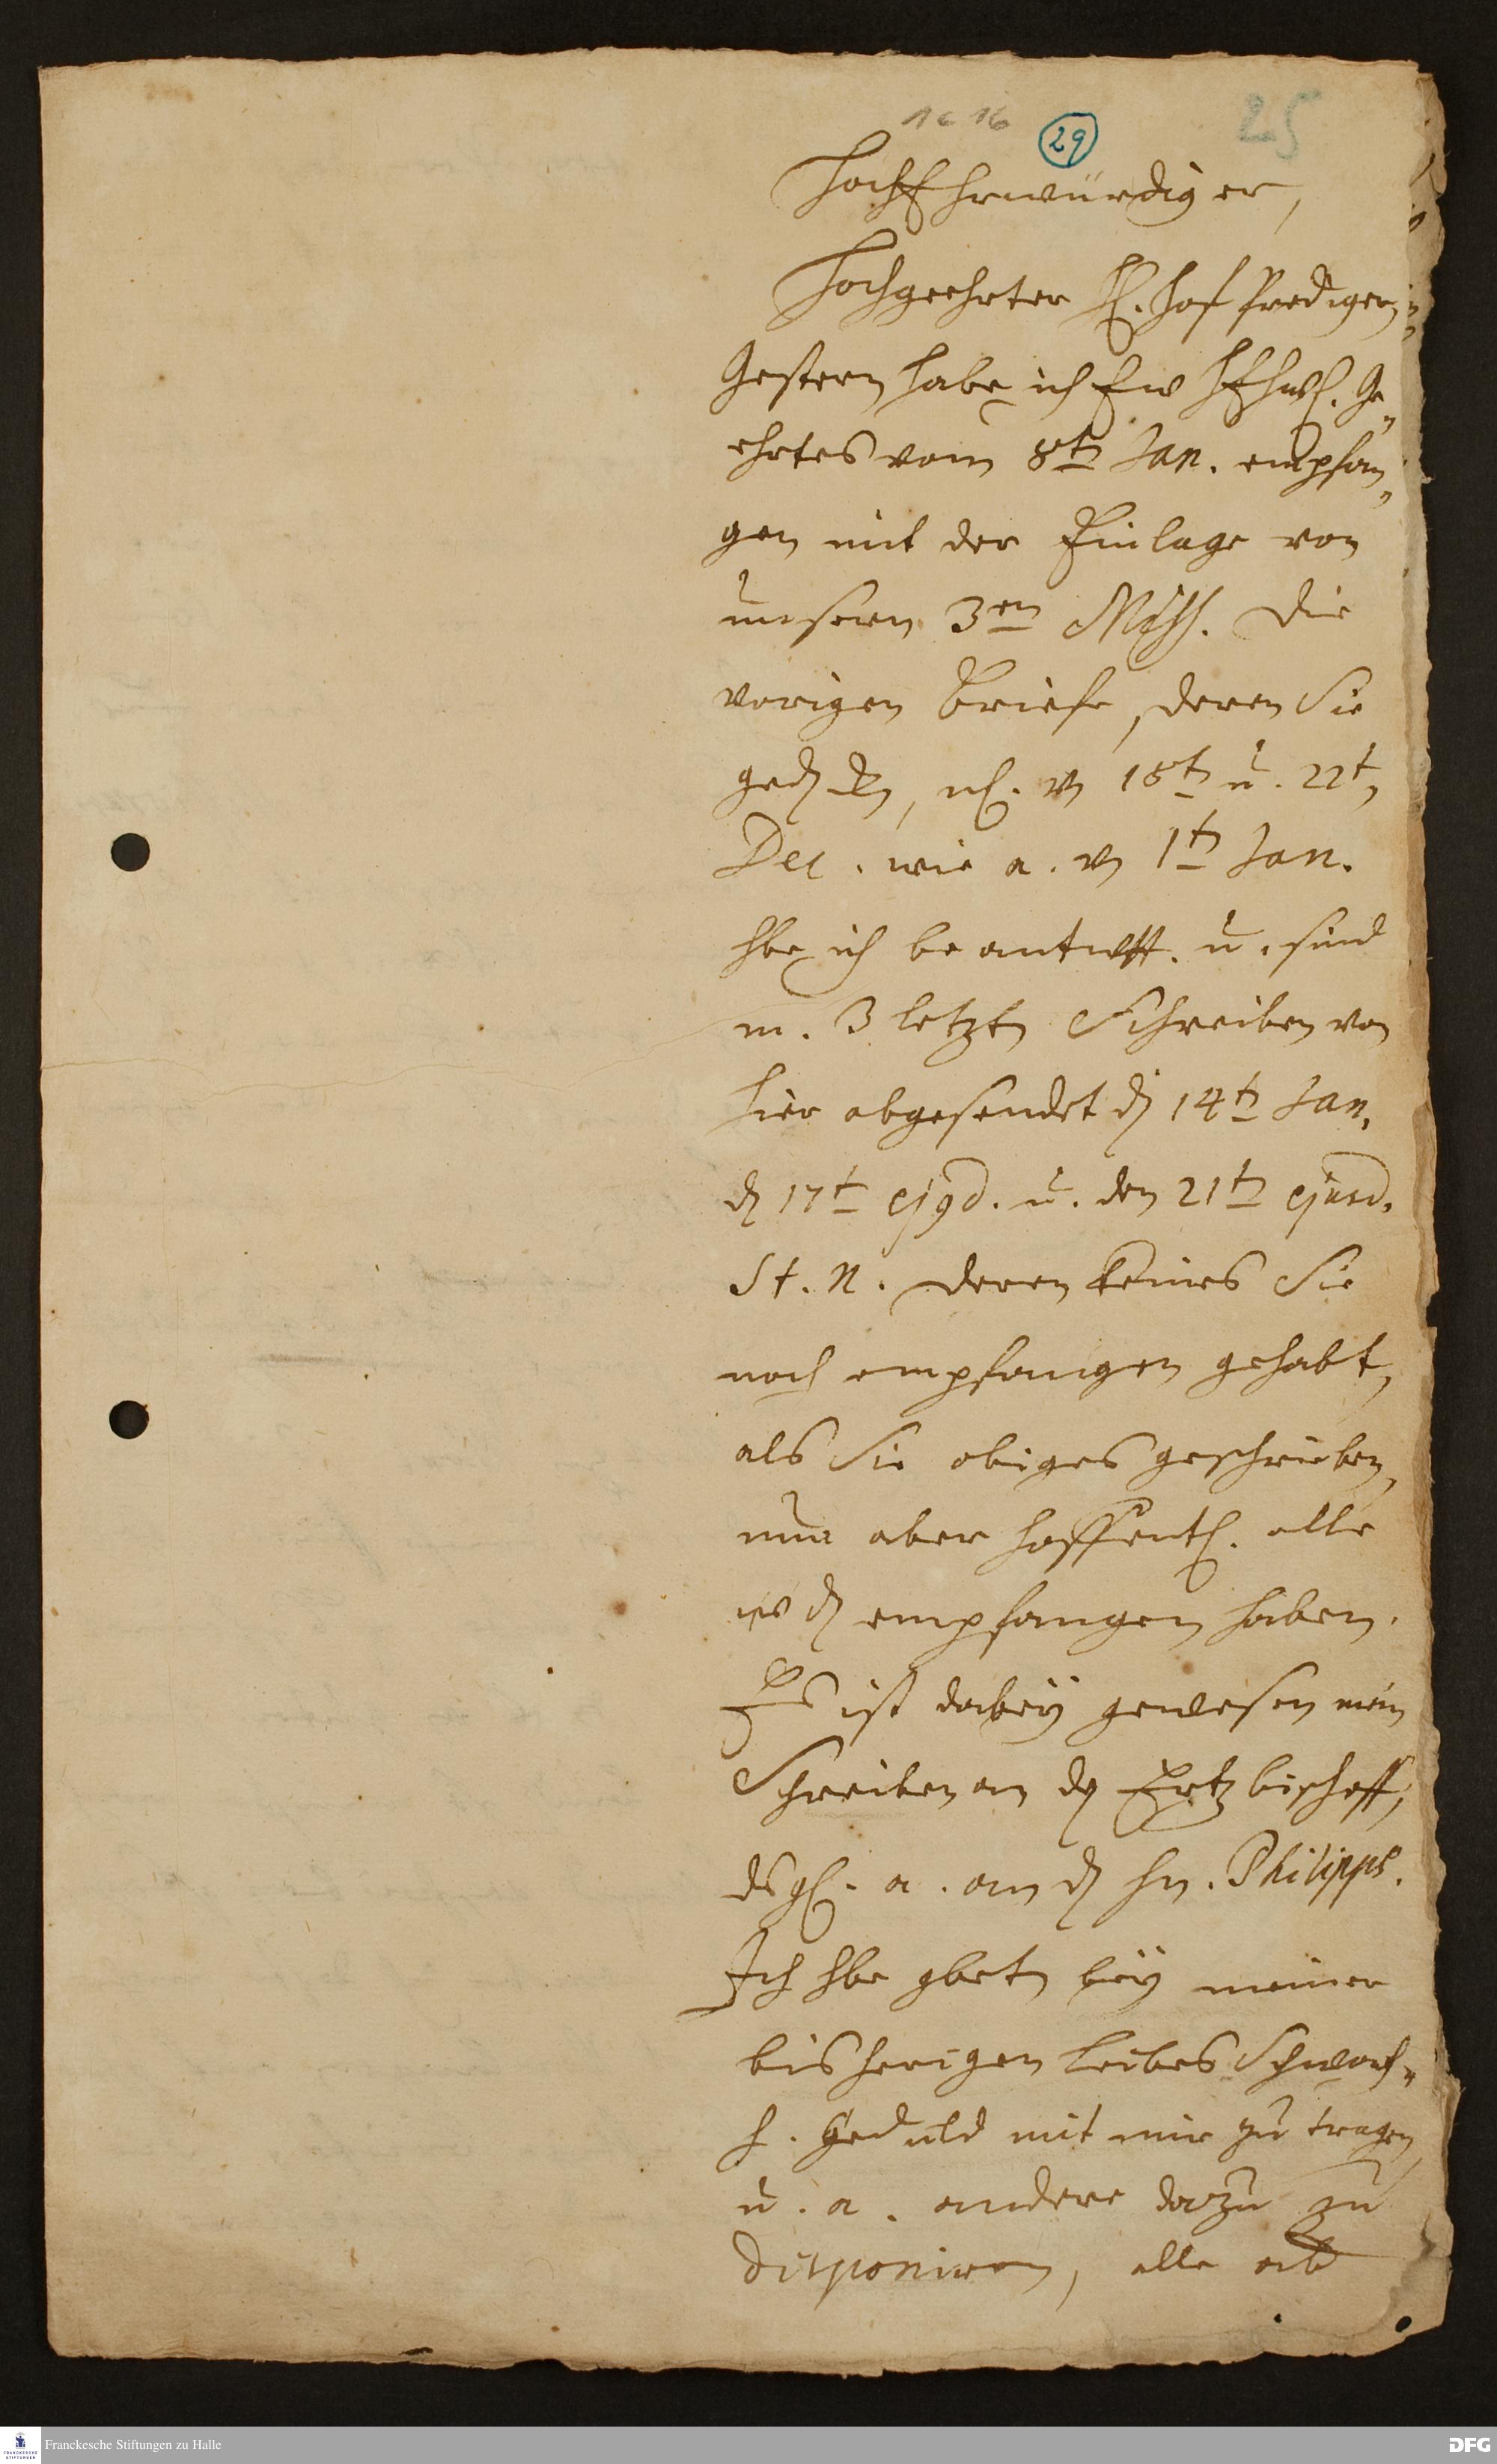 1 c 16
29
25
HochEhrwürdiger,
Hochgeehrter H. Hof Prediger,
Gestern habe ich Ew HEhrw. Ge„
ehrtes vom 8ten Jan. empfan„
gen mit der Einlage von
unsern 3en Miss. Die
vorigen Briefe, deren Sie
, nl. v 18ten u. 22t
Dec. wie a. v 1ten Jan.
hbe ich beantwtt. u. sind
m. 3 letztn Schreiben von
hier abgesendet d 14ten Jan.
d 17t ej9d. u. den 21ten ejusd.
St. N. deren keines Sie
noch empfangen gehabt,
als Sie obiges geschrieben,
nun aber hoffentl. alle
empfangen haben.
Es ist dabey gewesen mein
Schreiben an d Ertzbischoff,
dsgl. a. an d Hn. Philipps.
Ich hbe gbetn bey meiner
bisherigen Leibes Schwach„
h. Geduld mit mir zu tragen
u. a. andere dazu zu
disponiren, alle
Franckesche Stiftungen zu Halle
DFG